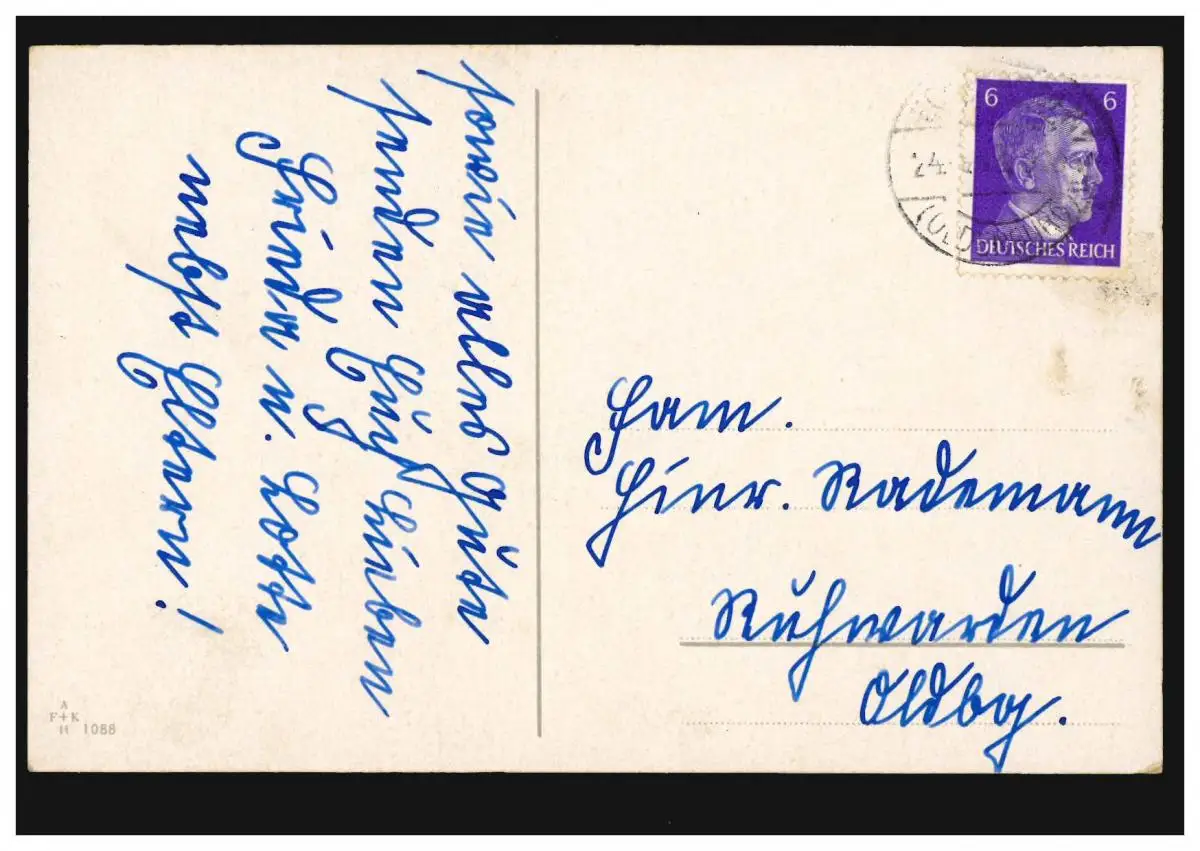 sowie alles Gute
senden Euch Lieben
Frieda u. Lotte
nebst Eltern!
6 6
DEUTSCHES REICH
24.
(OLD
Fam.
Hinr. Rademann
Ruhwarden
Oldbg.
A
F+K
1088